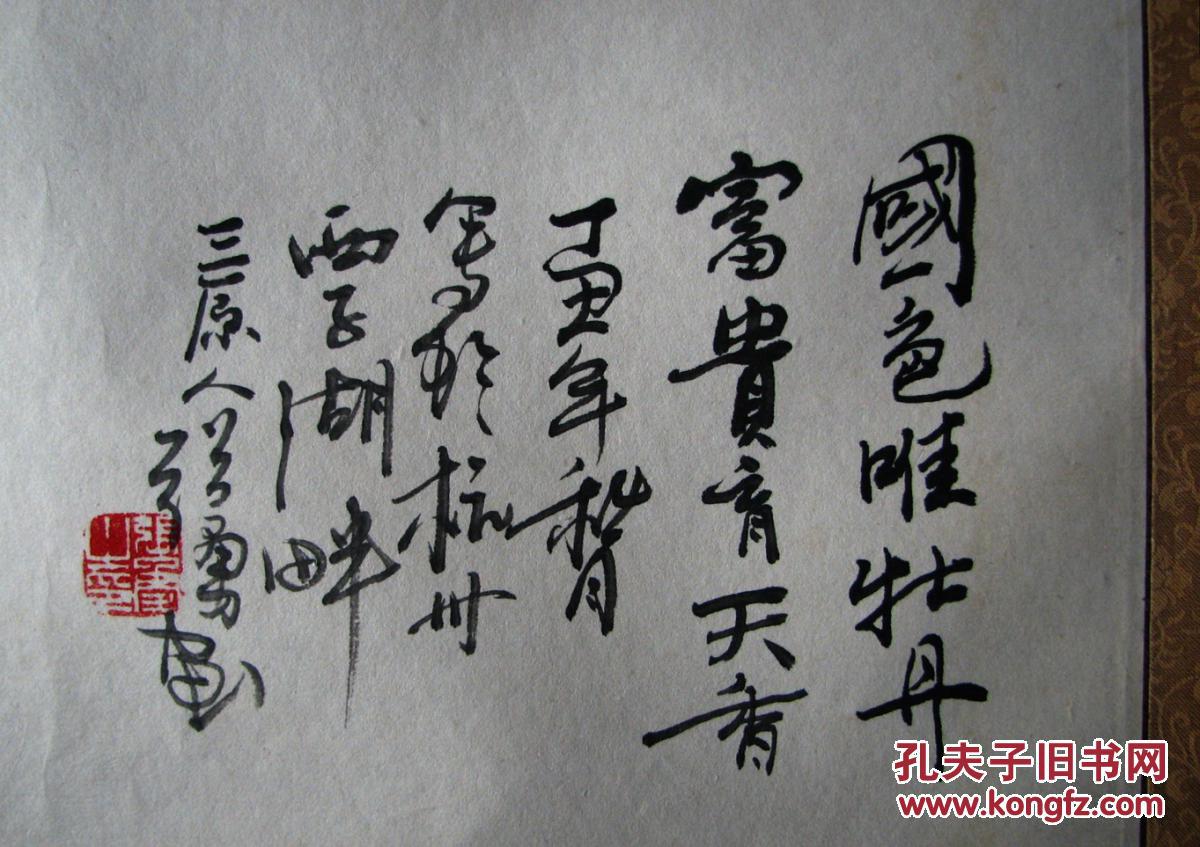 國色唯牡丹
富貴育天香
丁丑年秋月
寫於杭州
西子湖畔
三原人
畫
孔夫子旧书网
www.kongfz.com